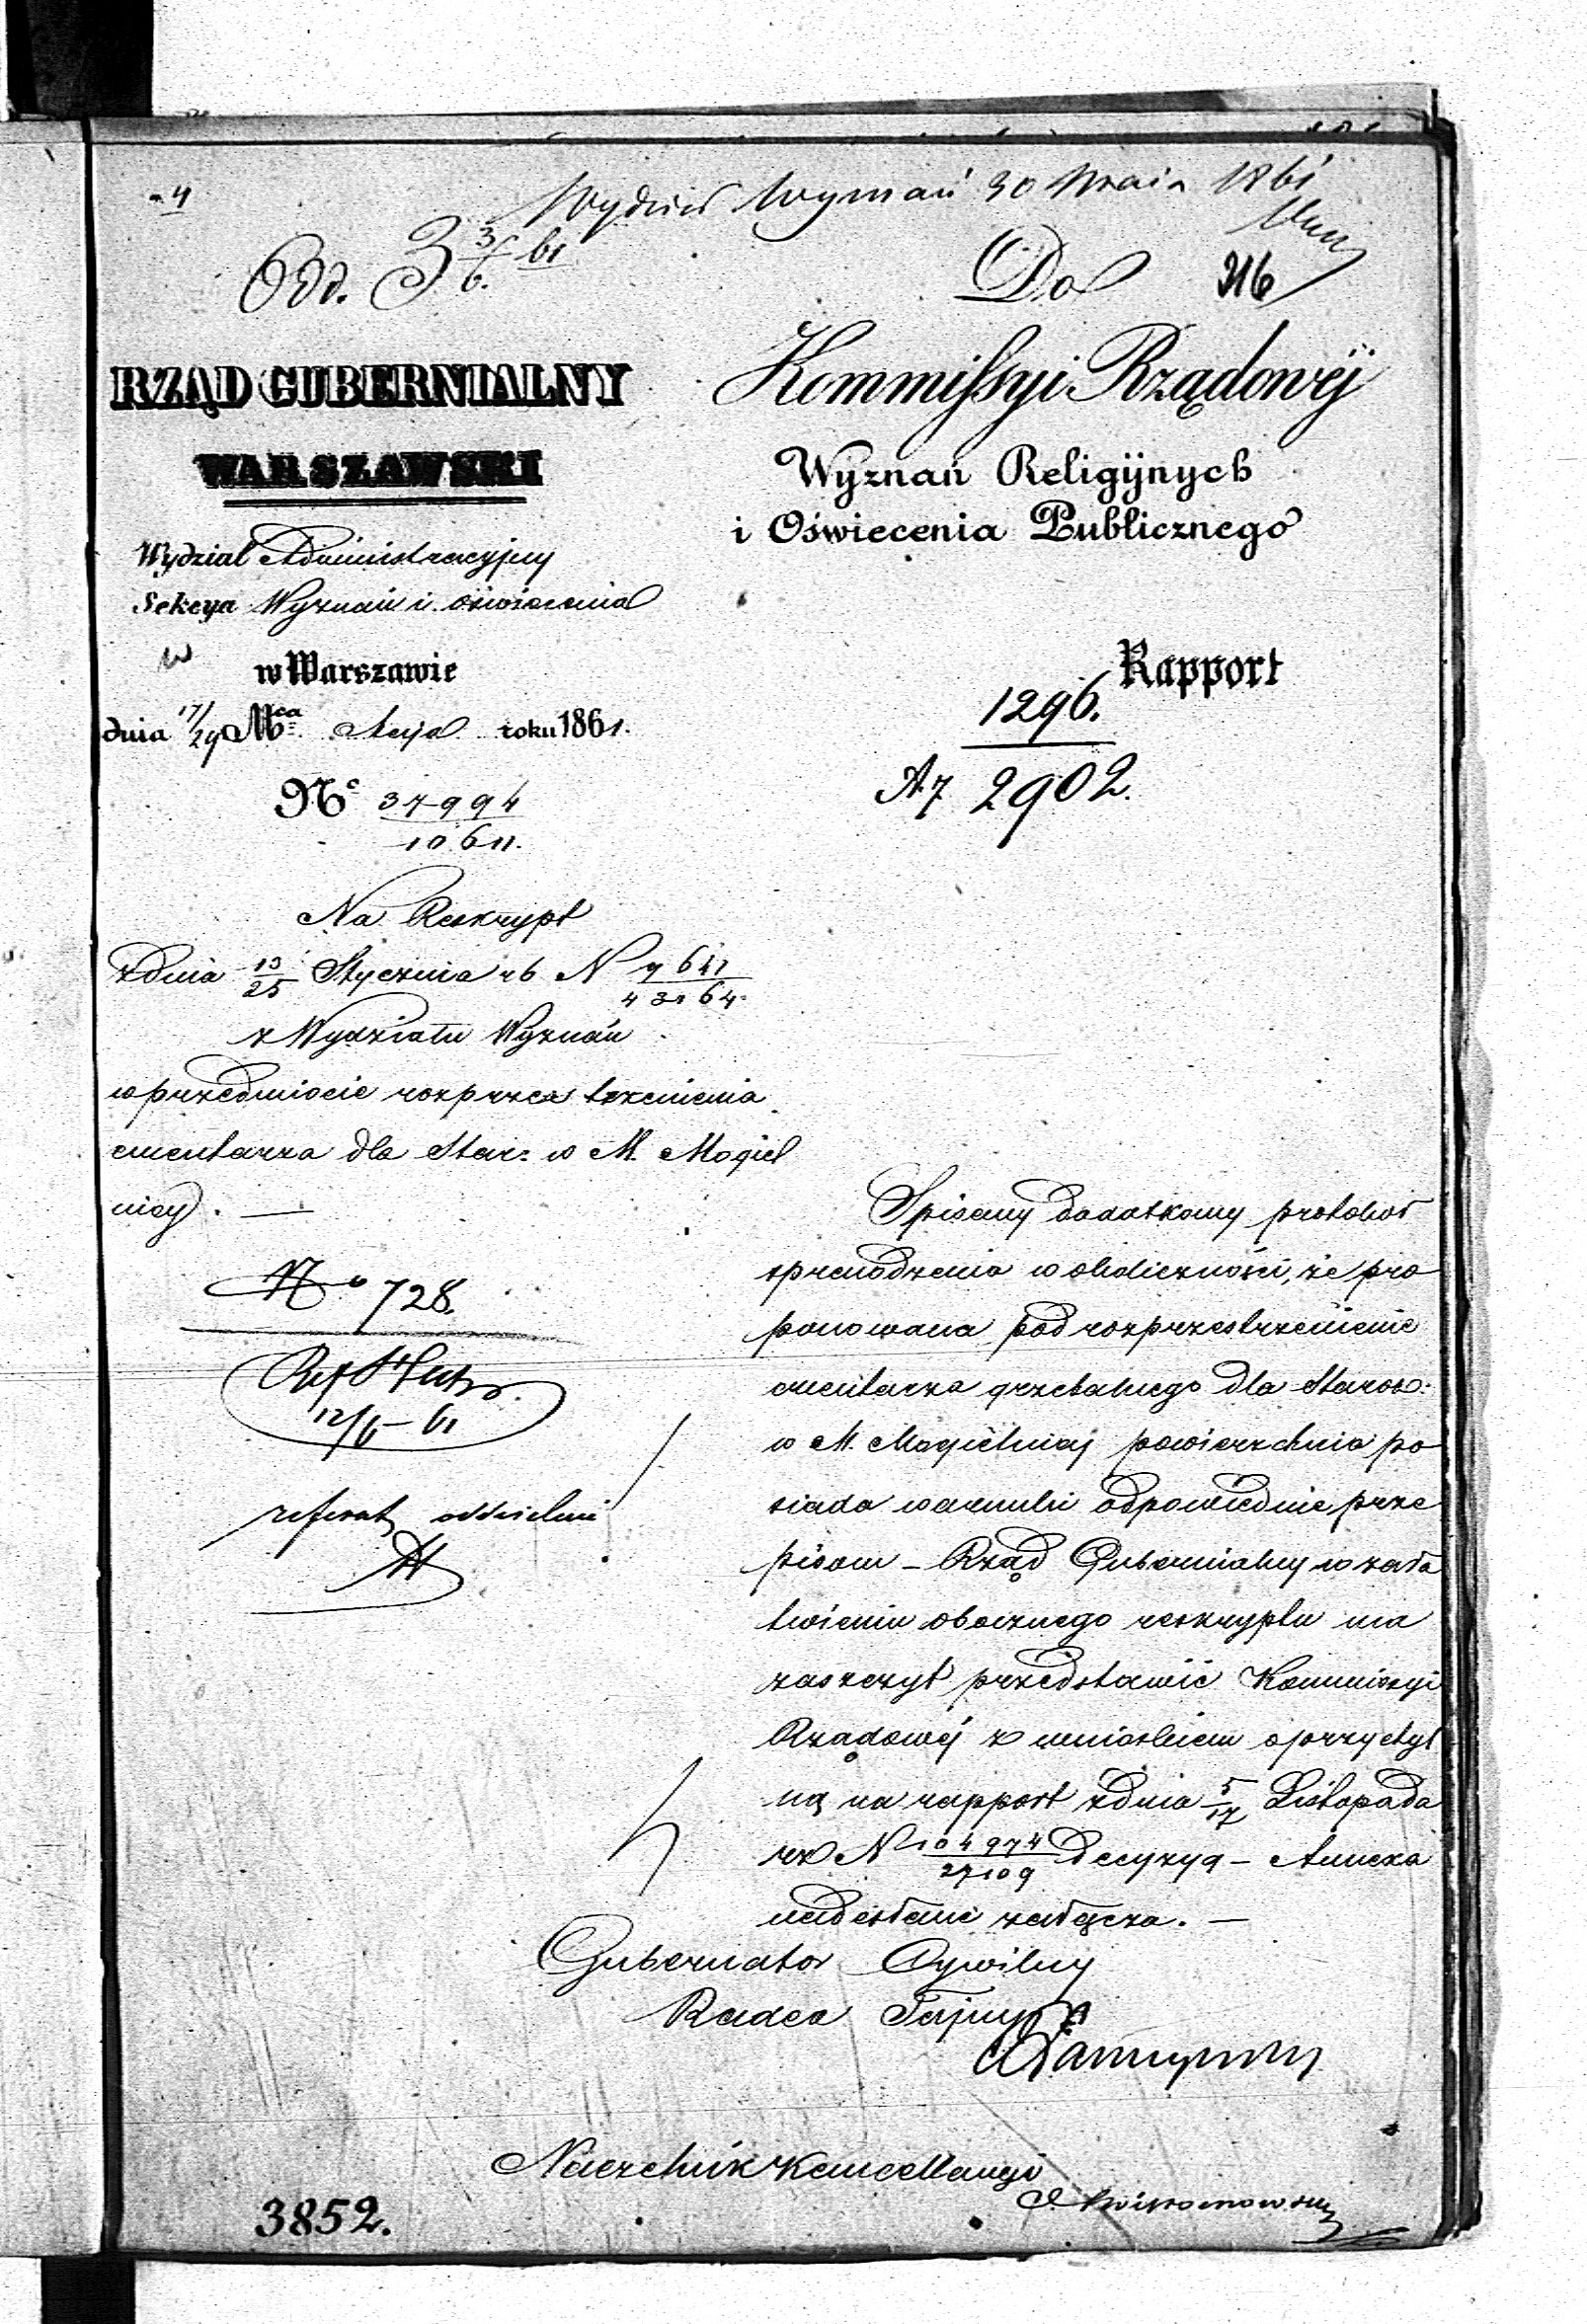 Wydział Wyznań 30 Maja 1861
Odd. 3 3/6 61
Do
316
RZĄD GUBERNIALNY
WARSZAWSKI
Wydział Administracyjny
Sekcya Wyznań i oświecenia
w Warszawie
dnia 17/29 Mca Maja roku 1861.
No 37994
10611.
Kommissyi Rządowéj
Wyznań Religijnych
i Oświecenia Publicznego
Rapport
1296.
2902.
Na Reskrypt
z dnia 13/25 Stycznia rb N
z Wydziału Wyznań
w przedmiocie rozprzestrzenienia
cmentarza dla Star: w M. Mogiel
nicy. —
No 728.
12/6 – 61
referat oddzielnie
Spisany dodatkowy protokół
sprawdzenia okoliczności, że pro
ponowana pod rozprzestrzenienie
cmentarza grzebalnego dla Staroz:
w M. Mogielnicy powierzchnia po
siada warunki odpowiednie prze
pisom – Rząd Gubernialny w zała
twieniu obocznego reskryptu ma
zaszczyt przedstawić Kommissyi
Rządowéj z wnioskiem o przychyl
ną na rapport z dnia 5/17 Listopada
rz N 104974/27109 decyzyą – Annexa
nadesłane załącza. —
Gubernator Cywilny
Radca Tajny
Naczelnik Kancellaryi
3852.